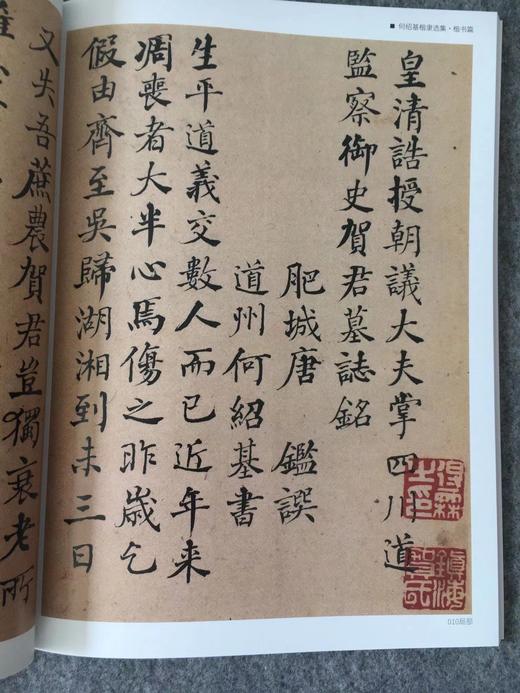 ■ 何绍基楷隶选集·楷书篇
皇清誥授朝議大夫掌四川道
監察御史賀君墓誌銘
肥城唐 鑑譔
道州何紹基書
生平道義交數人而已近年来
凋喪者大半心焉傷之昨歲乞
假由齊至吳歸湖湘到未三日
又失吾蔗農賀君豈獨衰老所
得霖
鎮海
010局部